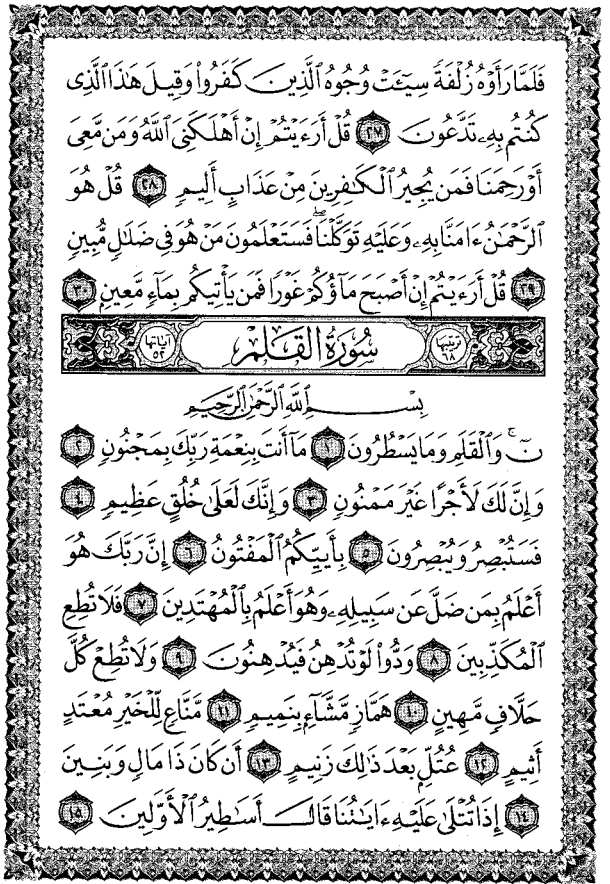 فَلَمَّا رَأَوْهُ زُلْفَةً سِيٓـَٔتْ وُجُوهُ ٱلَّذِينَ كَفَرُوا۟ وَقِيلَ هَٰذَا ٱلَّذِى
كُنتُم بِهِۦ تَدَّعُونَ ٢٧ قُلْ أَرَءَيْتُمْ إِنْ أَهْلَكَنِىَ ٱللَّهُ وَمَن مَّعِىَ
أَوْ رَحِمَنَا فَمَن يُجِيرُ ٱلْكَٰفِرِينَ مِنْ عَذَابٍ أَلِيمٍ ٢٨ قُلْ هُوَ
ٱلرَّحْمَٰنُ ءَامَنَّا بِهِۦ وَعَلَيْهِ تَوَكَّلْنَا ۖ فَسَتَعْلَمُونَ مَنْ هُوَ فِى ضَلَٰلٍ مُّبِينٍ
٢٩ قُلْ أَرَءَيْتُمْ إِنْ أَصْبَحَ مَآؤُكُمْ غَوْرًا فَمَن يَأْتِيكُم بِمَآءٍ مَّعِينٍۭ ٣٠
ترتيبها ٦٨ سُورَةُ القَلَمِ آياتها ٥٢
بِسْمِ ٱللَّهِ ٱلرَّحْمَٰنِ ٱلرَّحِيمِ
نٓ ۚ وَٱلْقَلَمِ وَمَا يَسْطُرُونَ ١ مَآ أَنتَ بِنِعْمَةِ رَبِّكَ بِمَجْنُونٍ ٢
وَإِنَّ لَكَ لَأَجْرًا غَيْرَ مَمْنُونٍ ٣ وَإِنَّكَ لَعَلَىٰ خُلُقٍ عَظِيمٍ ٤
فَسَتُبْصِرُ وَيُبْصِرُونَ ٥ بِأَييِّكُمُ ٱلْمَفْتُونُ ٦ إِنَّ رَبَّكَ هُوَ
أَعْلَمُ بِمَن ضَلَّ عَن سَبِيلِهِۦ وَهُوَ أَعْلَمُ بِٱلْمُهْتَدِينَ ٧ فَلَا تُطِعِ
ٱلْمُكَذِّبِينَ ٨ وَدُّوا۟ لَوْ تُدْهِنُ فَيُدْهِنُونَ ٩ وَلَا تُطِعْ كُلَّ
حَلَّافٍ مَّهِينٍ ١٠ هَمَّازٍ مَّشَّآءٍۭ بِنَمِيمٍ ١١ مَّنَّاعٍ لِّلْخَيْرِ مُعْتَدٍ
أَثِيمٍ ١٢ عُتُلٍّۭ بَعْدَ ذَٰلِكَ زَنِيمٍ ١٣ أَن كَانَ ذَا مَالٍ وَبَنِينَ
١٤ إِذَا تُتْلَىٰ عَلَيْهِ ءَايَٰتُنَا قَالَ أَسَٰطِيرُ ٱلْأَوَّلِينَ ١٥